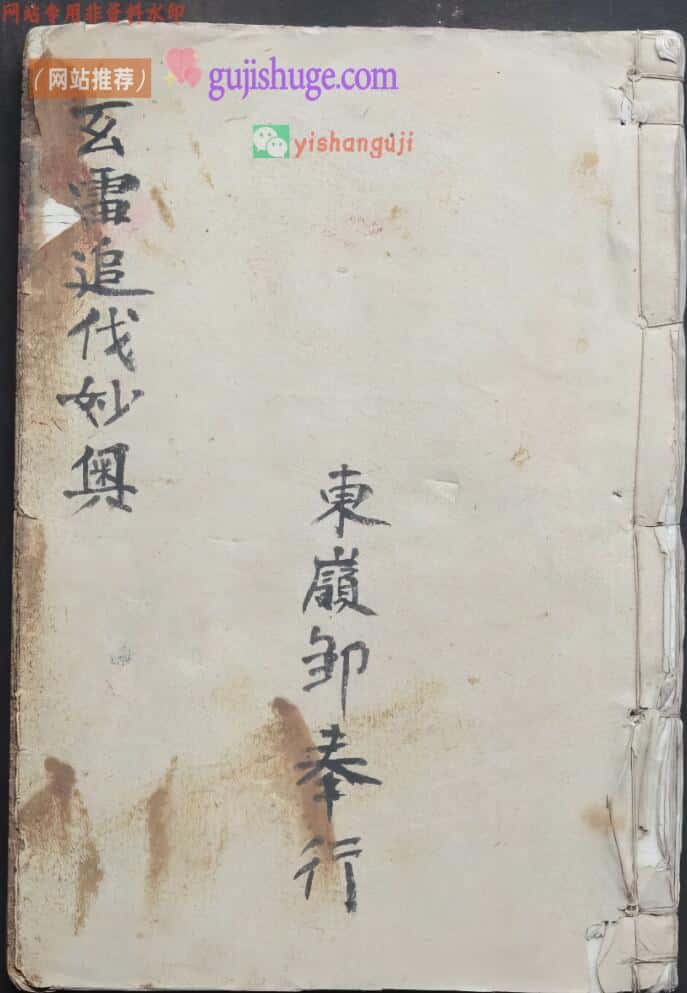 网站专用非资料水印
（网站推荐）
gujishuge.com
yishanguji
玄雷追伐妙奥
東嶺邹奉行